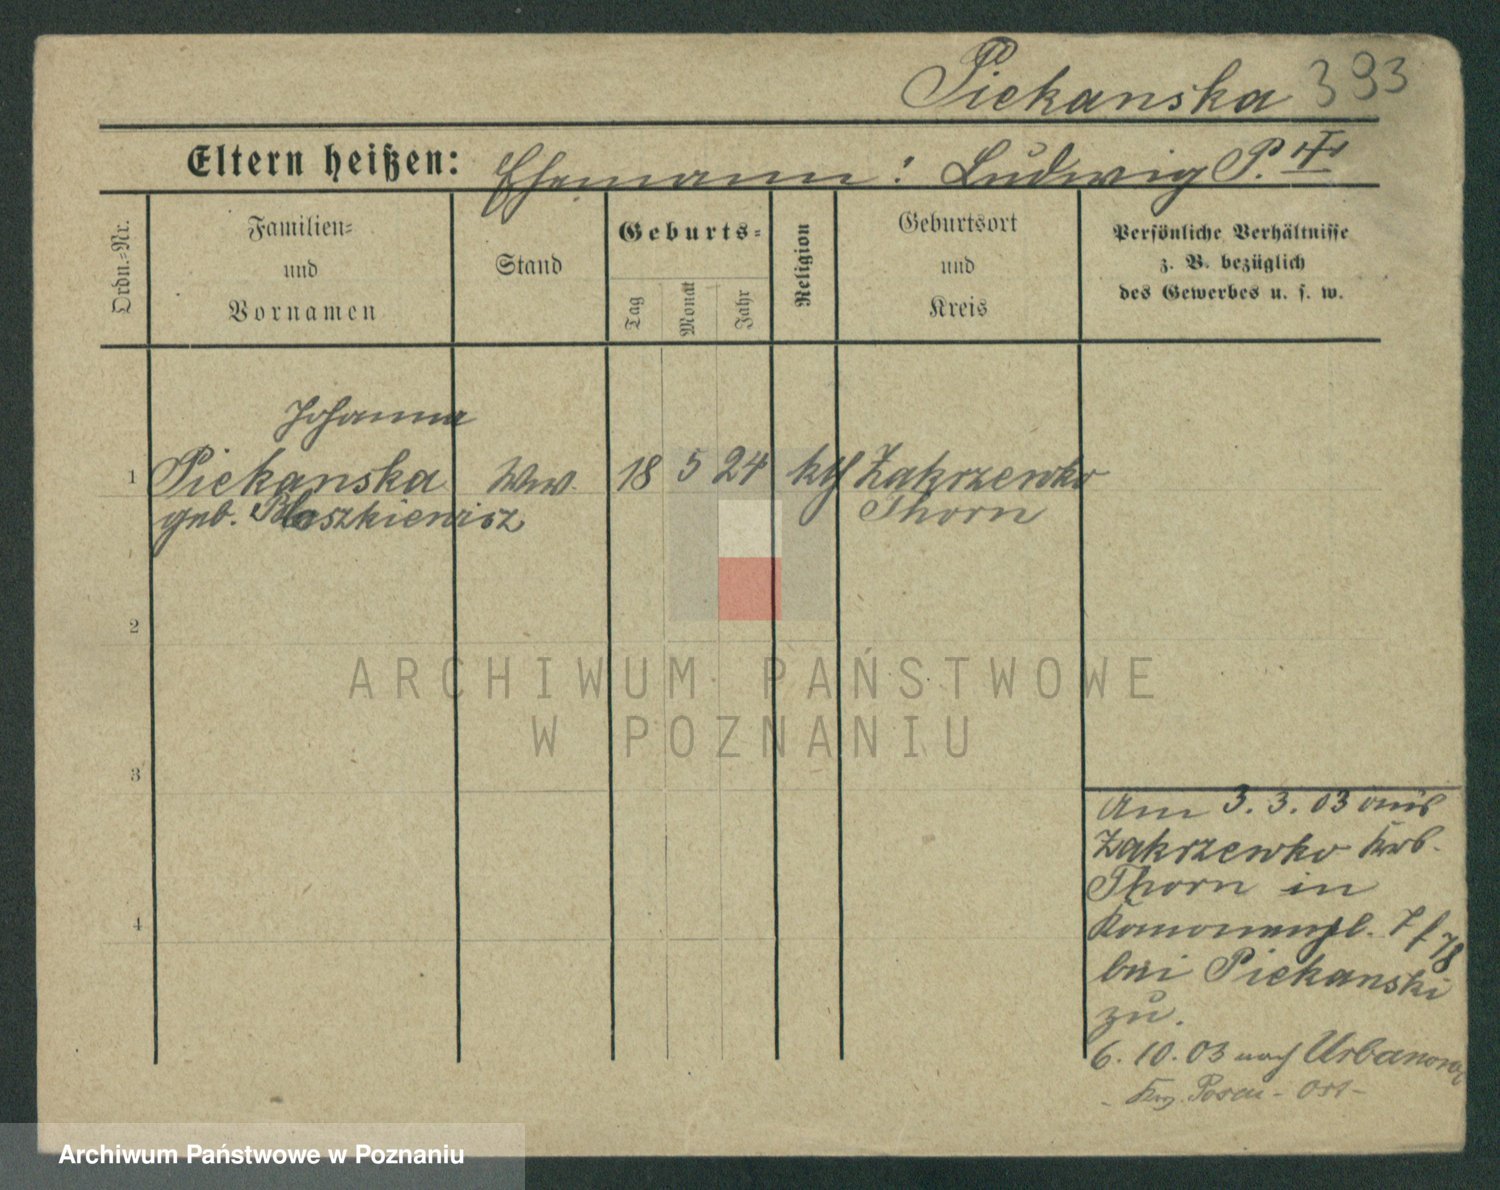 Piekanska 393
Eltern heißen: Ehemann: Ludwig P. †
Ordn.-Nr.
Familien-
und
Vornamen
Stand
Geburts-
Tag
Monat
Jahr
Religion
Geburtsort
und
Kreis
Persönliche Verhältnisse
z. B. bezüglich
des Gewerbes u. s. w.
Johanna
1 Piekanska Ww. 18 5 24 kth Zakrzewko
geb. Thorn
2
3
4
Am 3. 3. 03 aus
Zakrzewko
Thorn in
78
bei Piekanski
zu.
6. 10. 03 nach Urbanowo
Posen - Ost -
ARCHIWUM PAŃSTWOWE
W POZNANIU
Archiwum Państwowe w Poznaniu